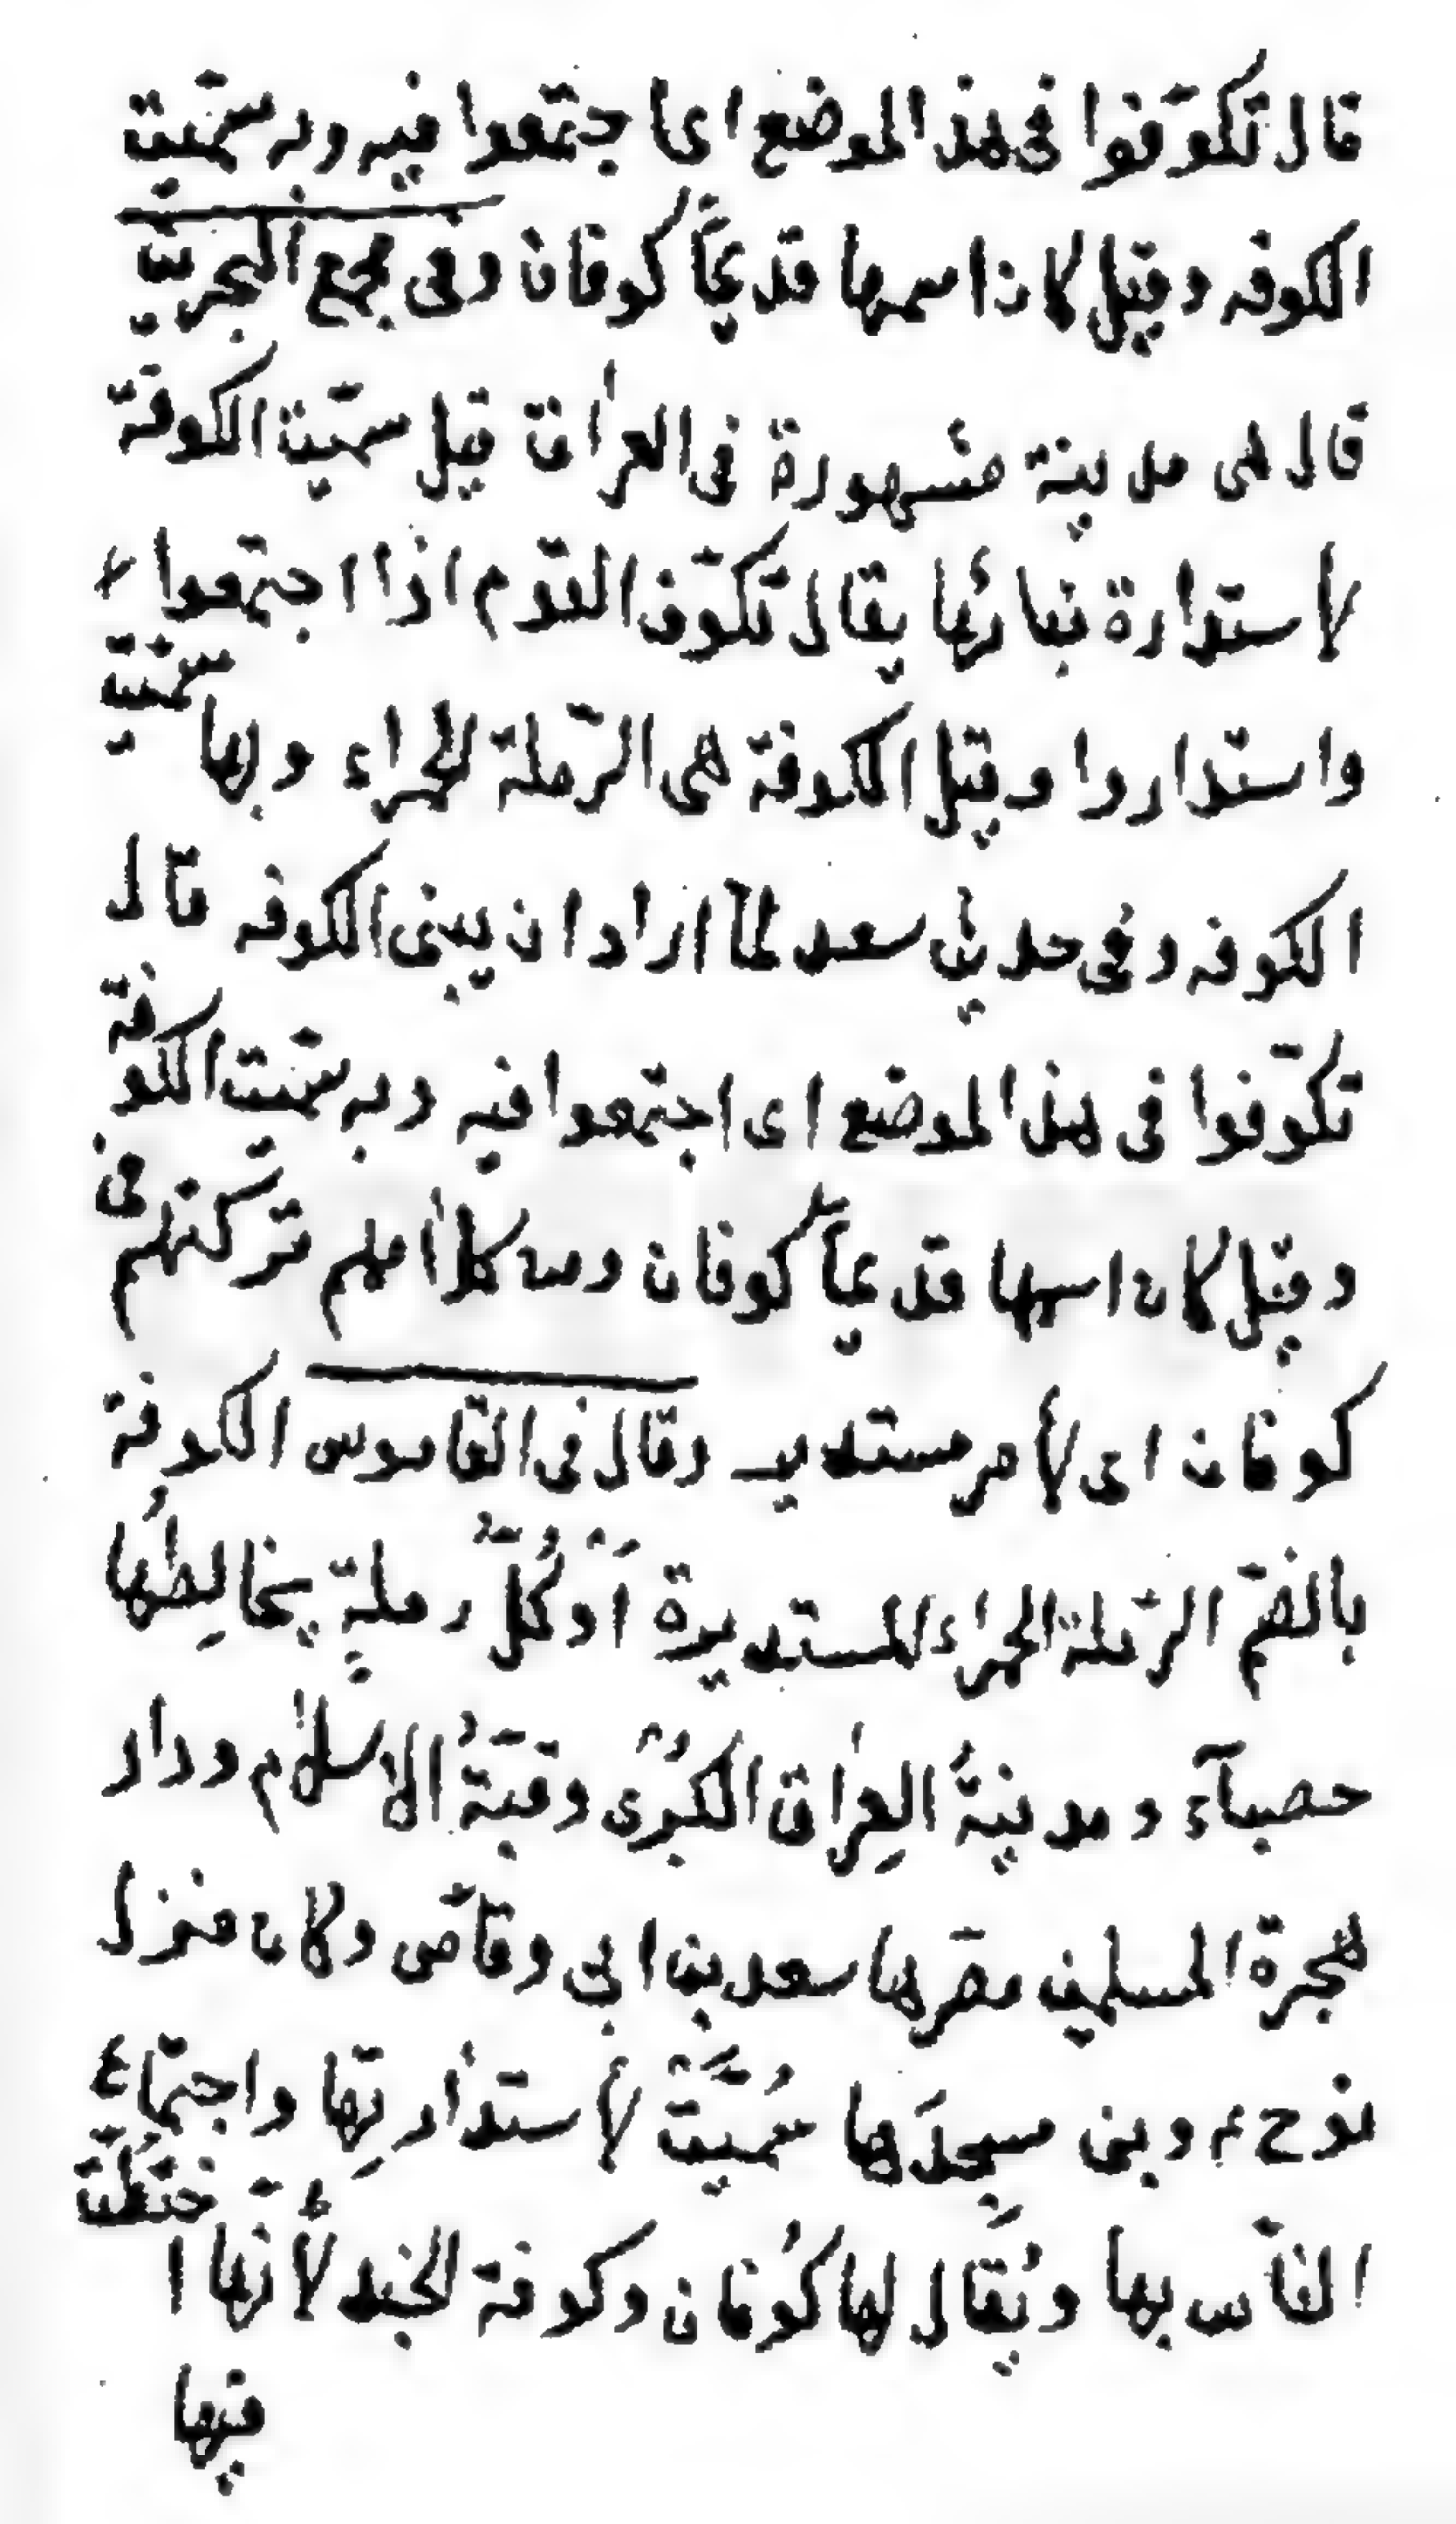 قال تكوّفوا فى هذا الموضع اى اجتمعوا فيه وبه سمّيت
الكوفه وقيل كان اسمها قديمًا كوفان وفى مجمع البحرين
قال هى مدينة مشهورة فى العراق قيل سمّيت الكوفة
لأستدارة بنائها يقال تكوّف القوم اذا اجتمعوا
واستداروا وقيل الكوفة هى الرّملة الحمراء وبها سمّيت
الكوفه وفى حديث سعد لمّا اراد ان يبنى الكوفه قال
تكوّفوا فى هذا الموضع اى اجتمعوا فيه وبه سمّيت الكوفة
وقيل كان اسمها قديماً كوفان ومنه كلامهم تركتهم فى
كوفان اى لأمر مستدير وقال فى القاموس الكوفة
بالضمّ الرّملة الحمراء المستديرة اَوْ كُلّ رملةٍ يخالِطُها
حصبآء ومدينةُ العِراق الكُبْرى وقبَّةُ الاسلام ودار
هجرة المسلمين مصّرها سعد بن ابى وقّاص وكان منزل
نوح ع وبنى مسجدَها سُمِّيَتْ لأستدارتِها واجتماع
النّاس بها ويُقال لها كُوفان وكوفة الجند لأنّها اختُطّت
فيها